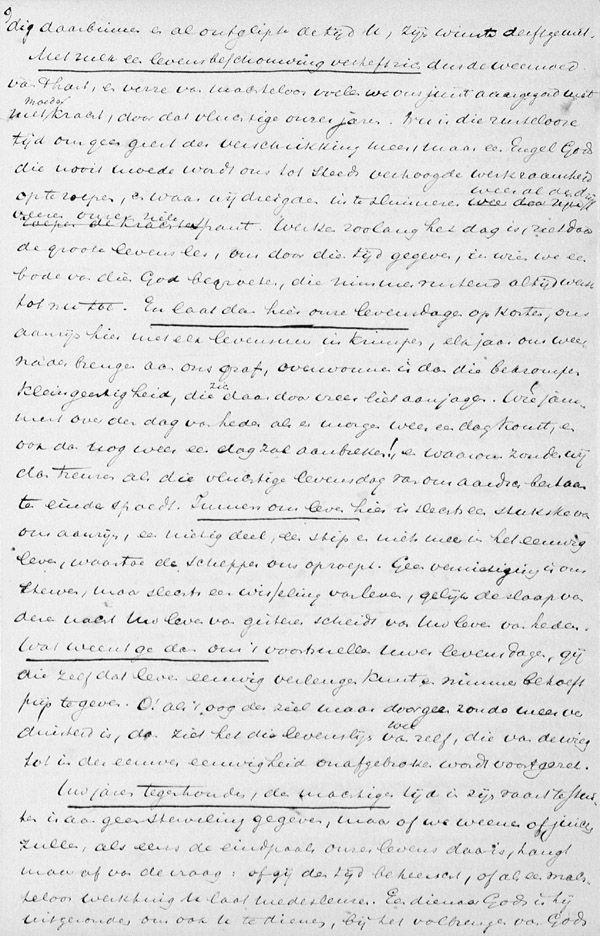 dig daarbinnen en al ontglipt de tijd U, zijn winste derft ge niet.
Met zulk een levensbeschouwing verheft zich dan de weemoed
van 't hart, en verre van machteloos voelen we ons juist aangegord met
moed
met kracht, door dat vluchtige onzer jaren. Nu is die rustelooze
tijd ons geen geest der verschrikking meer, maar een Engel Gods
die nooit moede wordt ons tot steeds verhoogde werkzaamheid
op te roepen, en waar wij dreigden in te sluimeren weer al de
veeren onzer ziel
spant. Werken zoolang het dag is, ziet daar
de groote levensles, ons door die tijd gegeven, in wien we een
bode van die God begroeten, die nimmer rustend altijd werkt
tot nu toe. En laat dan hier onze levensdagen op korten, ons
aanzijn hier met elk levensuur inkrimpen, elk jaar ons weer
nader brengen aan ons graf, overwonnen is dan die bekrompen
kleingeestigheid, die zich daardoor vrees liet aanjagen. Wie jam-
mert over den dag van heden als er morgen weer een dag komt, en
ook dan nog weer een dag zal aanbreken! en waarom zonden wij
dan treuren als die vluchtige levensdag van ons aardsch bestaan
ten einde spoedt. Immers ons leven hier is slechts een stukske van
ons aanzijn, een nietig deel, een stip en niets meer in het eeuwig
leven, waartoe de Schepper ons oproept. Geen vernietiging is ons
sterven, maar slechts een wisseling van leven, gelijk de slaap van
dezen nacht Uw leven van gisteren scheidt van Uw leven van heden.
Wat weent ge dan om 't voortsnellen uwer levensdagen, gij
die zelf dat leven eeuwig verlengen kunt en nimmer behoeft
prijs te geven. O! als 't oog der ziel maar door geen zonde meer ver
duisterd is, dan ziet het die levenslijn wel van zelf, die van de wieg
tot in der eeuwen eeuwigheid onafgebroken wordt voortgezet.
Uw jaren tegenhouden, den machtigen tijd in zijn vaart te stui-
ten is aan geen sterveling gegeven, maar of we weenen of juichen
zullen, als eens de eindpaal onzes levens daar is, hangt
maar af van de vraag: of gij den tijd beheerscht, of als een mach-
teloos werktuig U laat medesleuren. Een dienaar Gods is hij
uitgezonden om ook U te dienen, bij het volbrengen van Gods